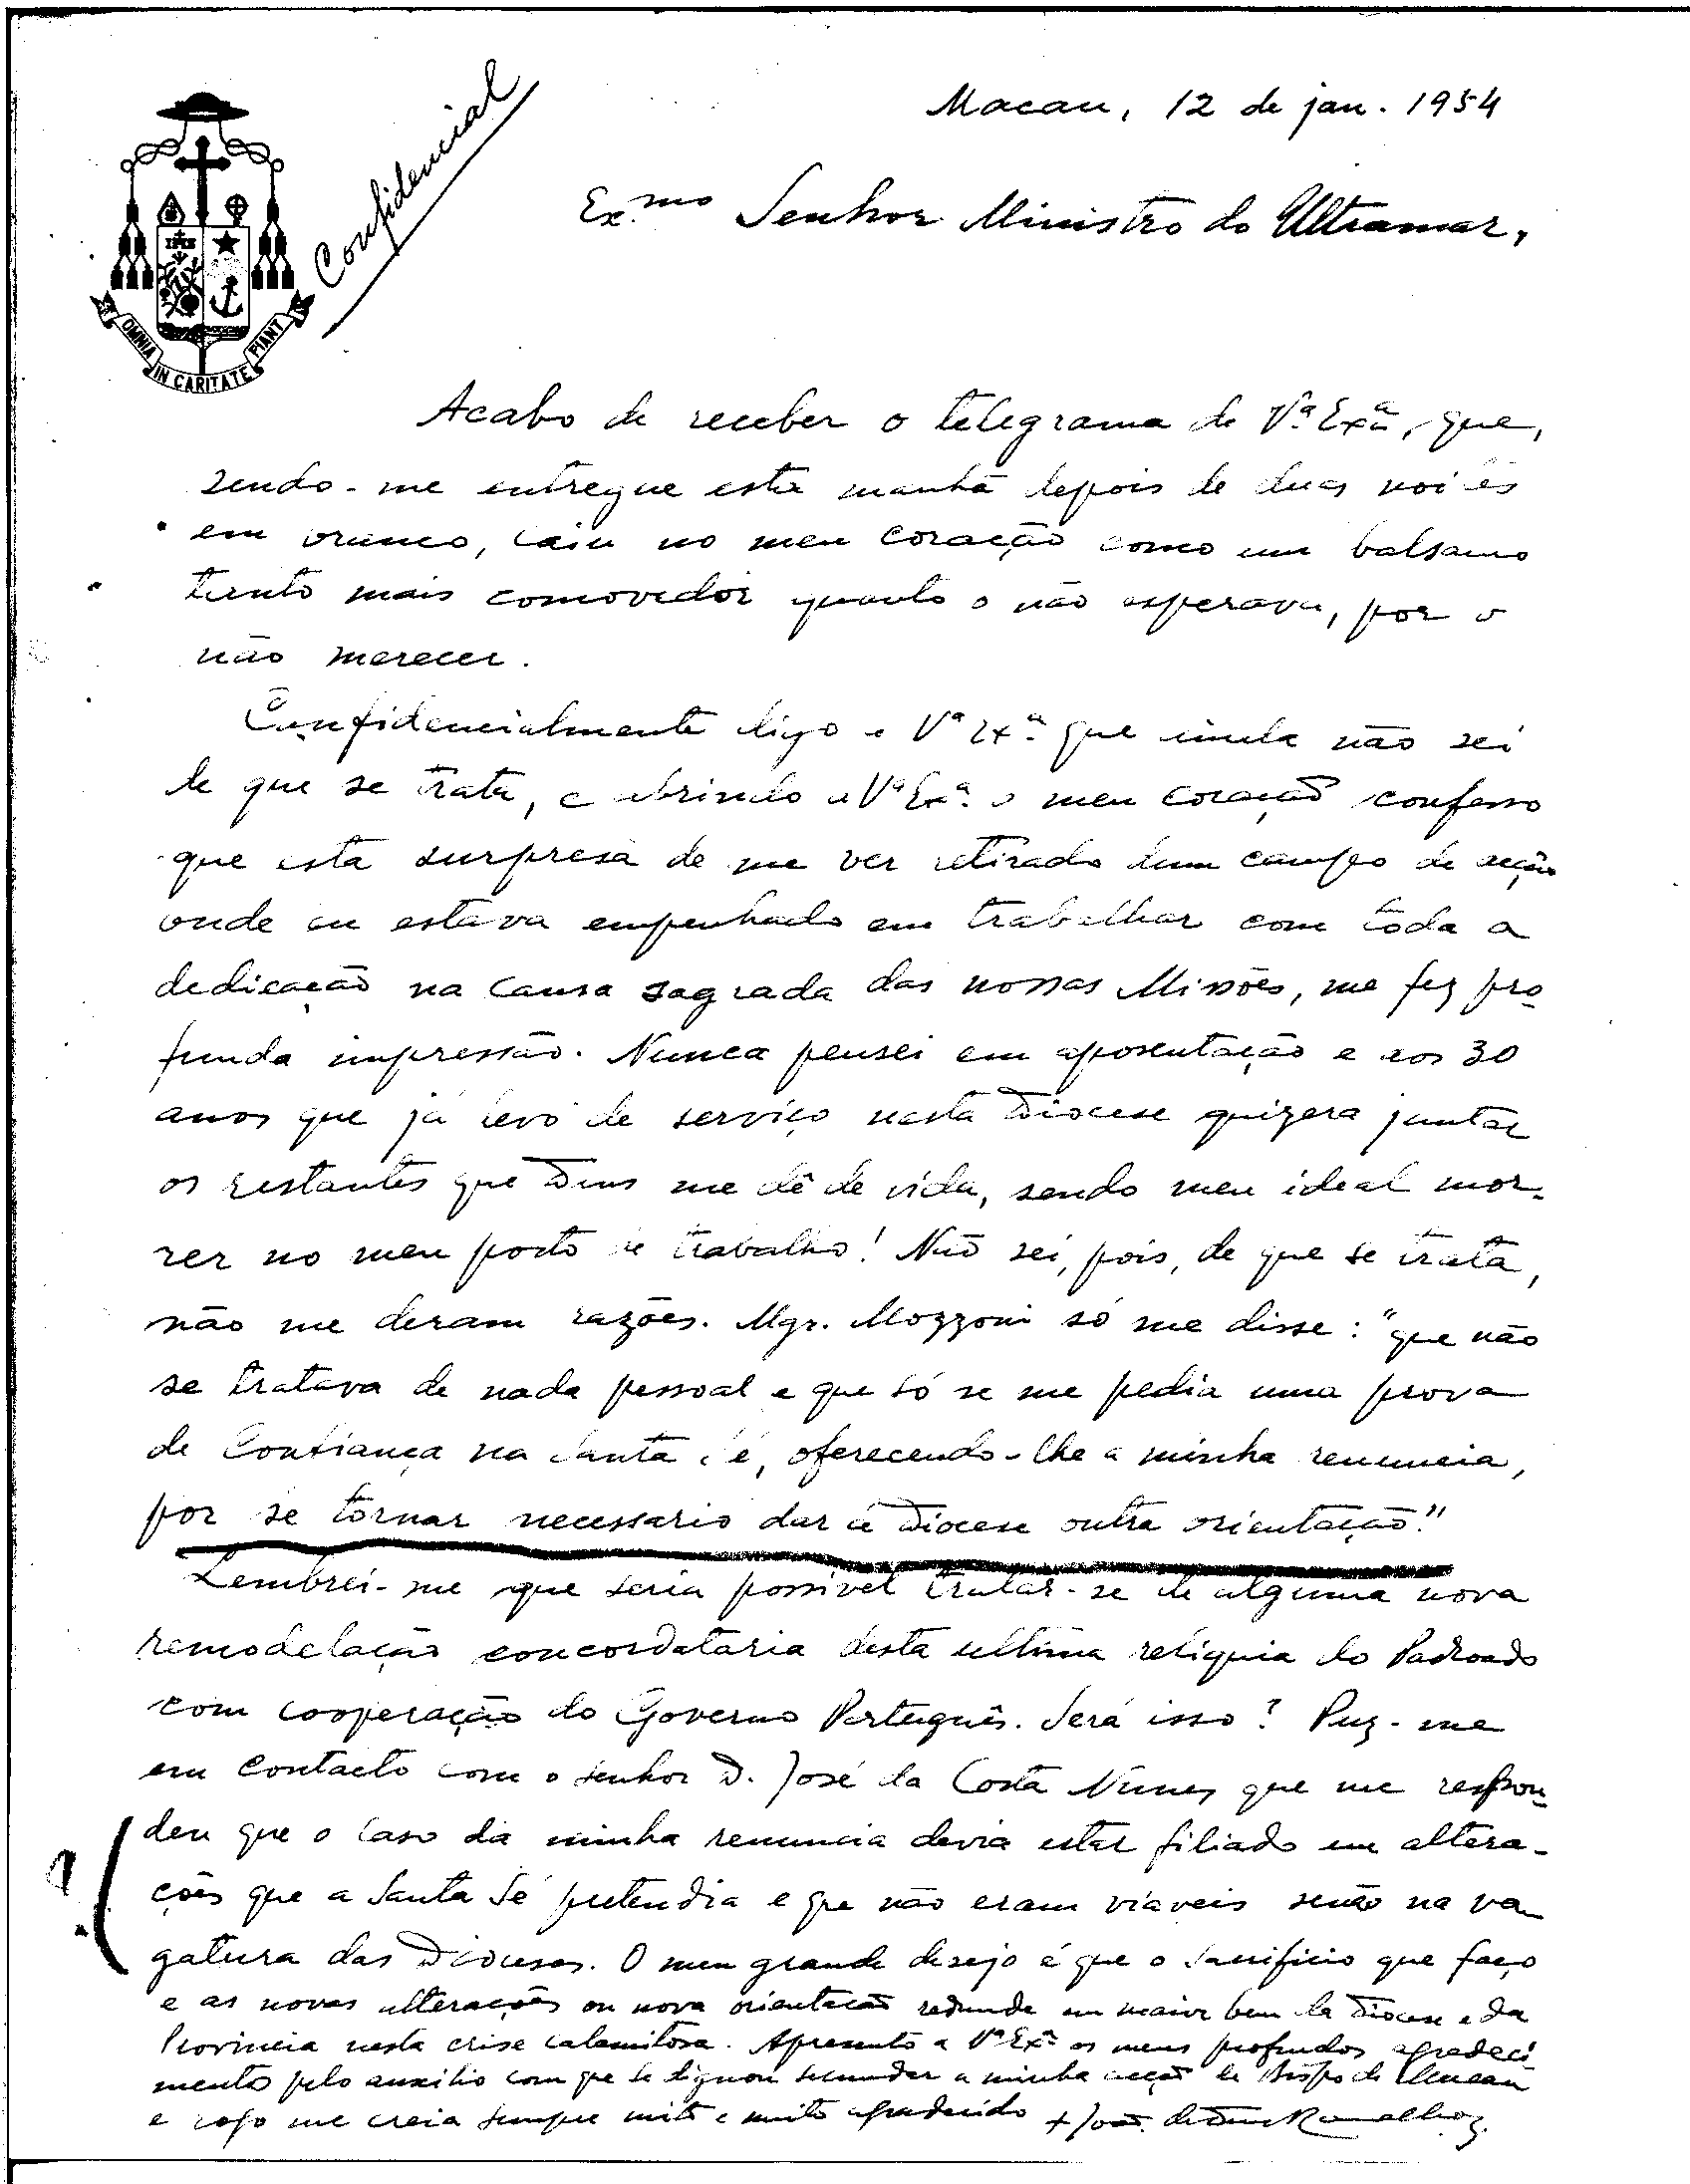 Macau, 12 de jan. 1954
Confidencial
Ex.mo Senhor Ministro do Ultramar,
OMNIA IN CARITATE FIANT
Acabo de receber o telegrama de V.ª Ex.ª, que,
sendo-me entregue esta manhã depois de duas noites
em branco, caiu no meu coração como um balsamo
tanto mais comovedor quanto o não esperava, por o
não merecer.
Confidencialmente digo a Vª Exª que ainda não sei
de que se trata, e abrindo a Vª Exª o meu coração confesso
que esta surpresa de me ver retirado dum campo de acção
onde eu estava empenhado em trabalhar com tôda a
dedicação na causa sagrada das nossas Missões, me fez pro-
funda impressão. Nunca pensei em aposentação e aos 30
anos que já levo de serviço nesta Diocese quizera juntar
os restantes que Deus me dê de vida, sendo meu ideal mor-
rer no meu posto de trabalho! Não sei, pois, de que se trata,
não me deram razões. Mgr. Mozzoni só me disse: "que não
se tratava de nada pessoal e que só se me pedia uma prova
de confiança na Santa Sé, oferecendo-lhe a minha renuncia,
por se tornar necessario dar á Diocese outra orientação."
Lembrei-me que seria possivel tratar-se de alguma nova
remodelação concordataria desta ultima reliquia do Padroado
com cooperação do Governo Português. Será isso? Puz-me
em contacto com o senhor D. José da Costa Nunes que me respon-
deu que o caso da minha renuncia devia estar filiado em altera-
ções que a Santa Sé pretendia e que não eram viaveis senão na va-
gatura das Dioceses. O meu grande desejo é que o sacrificio que faço
e as novas alterações ou nova orientação redunde em maior bem da Diocese e da
Provincia nesta crise calamitosa. Apresento a Vª Exª os meus profundos agradeci-
mentos pelo auxilio com que se dignou secundar a minha acção de Bispo de Macau
e rogo me creia sempre mito e muito agradecido + João de Deus Ramalho